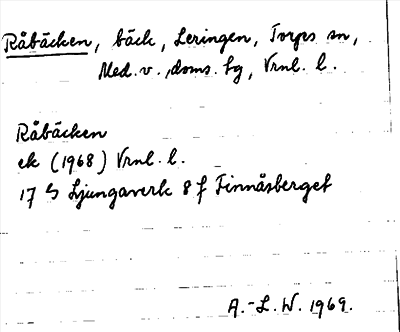 Råbäcken, bäck, Leringen, Torps sn,
Med. v., doms. hg, Vrnl. l.
Råbäcken
ek (1968) Vrnl. l.
17 S Ljungaverk 8 f Finnåsberget
A.-L. W. 1969.